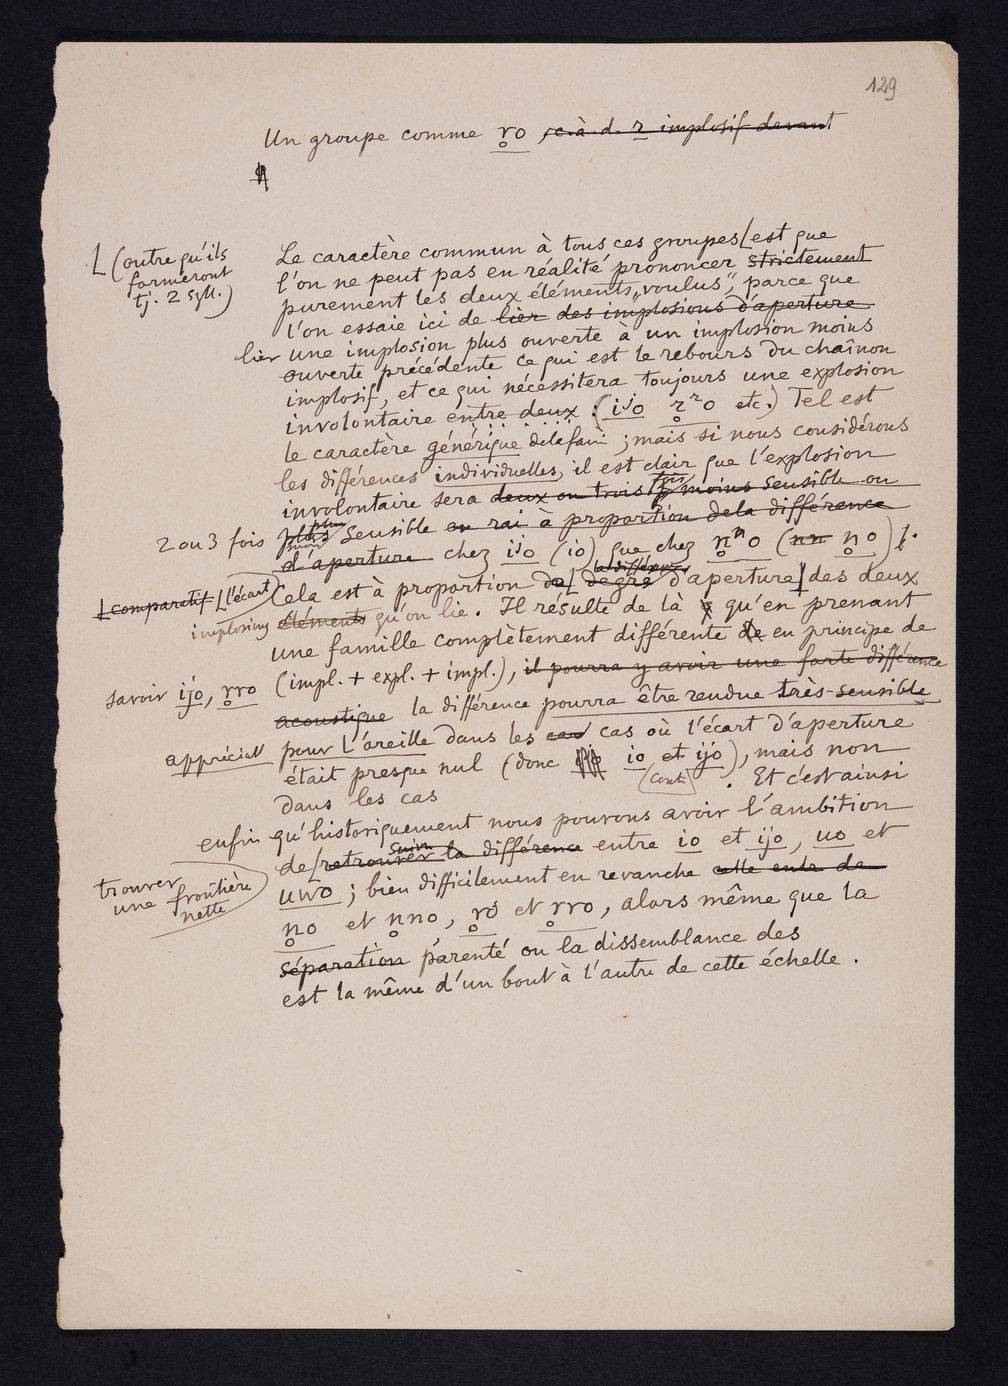 129
Un groupe comme r̥o , c.à.d. r implosif devant
L (outre qu'ils
formeront
tj. 2 syll.)
Le caractère commun à tous ces groupes L est que
l'on ne peut pas en réalité prononcer strictement
purement les deux éléments „voulus", parce que
l'on essaie ici de lier des implosions d'aperture
lier une implosion plus ouverte à un implosion moins
ouverte précédente ce qui est le rebours du chaînon
implosif, et ce qui nécessitera toujours une explosion
involontaire entre deux : (iʲo r̥ʳo etc.) Tel est
le caractère générique ; mais si nous considérons
les différences individuelles, il est clair que l'explosion
involontaire sera deux ou trois fois moins sensible ou
2 ou 3 fois plus sensible à proportion de la différence
d'aperture chez iʲo (io) que chez n̥ⁿo (nn n̥o)
L comparatif L l'écart
Cela est à proportion L degré d'aperture des deux
implosions éléments qu'on lie. Il résulte de là qu'en prenant
une famille complètement différente de en principe de
savoir ijo, r̥ro
(impl. + expl. + impl.), il pourra y avoir une forte différence
acoustique la différence pourra être rendue très-sensible
appréciabl
pour l'oreille dans les cas cas où l'écart d'aperture
était presque nul (donc io et ijo), mais non
dans les cas (cont.) . Et c'est ainsi
enfin qu'historiquement nous pouvons avoir l'ambition
de L retrouver suivre la différence entre io et ijo, uo et
trouver
une frontière
nette
uwo ; bien difficilement en revanche celle entre de
n̥o et n̥no, r̥o et r̥ro, alors même que la
séparation parenté ou la dissemblance des
est la même d'un bout à l'autre de cette échelle.